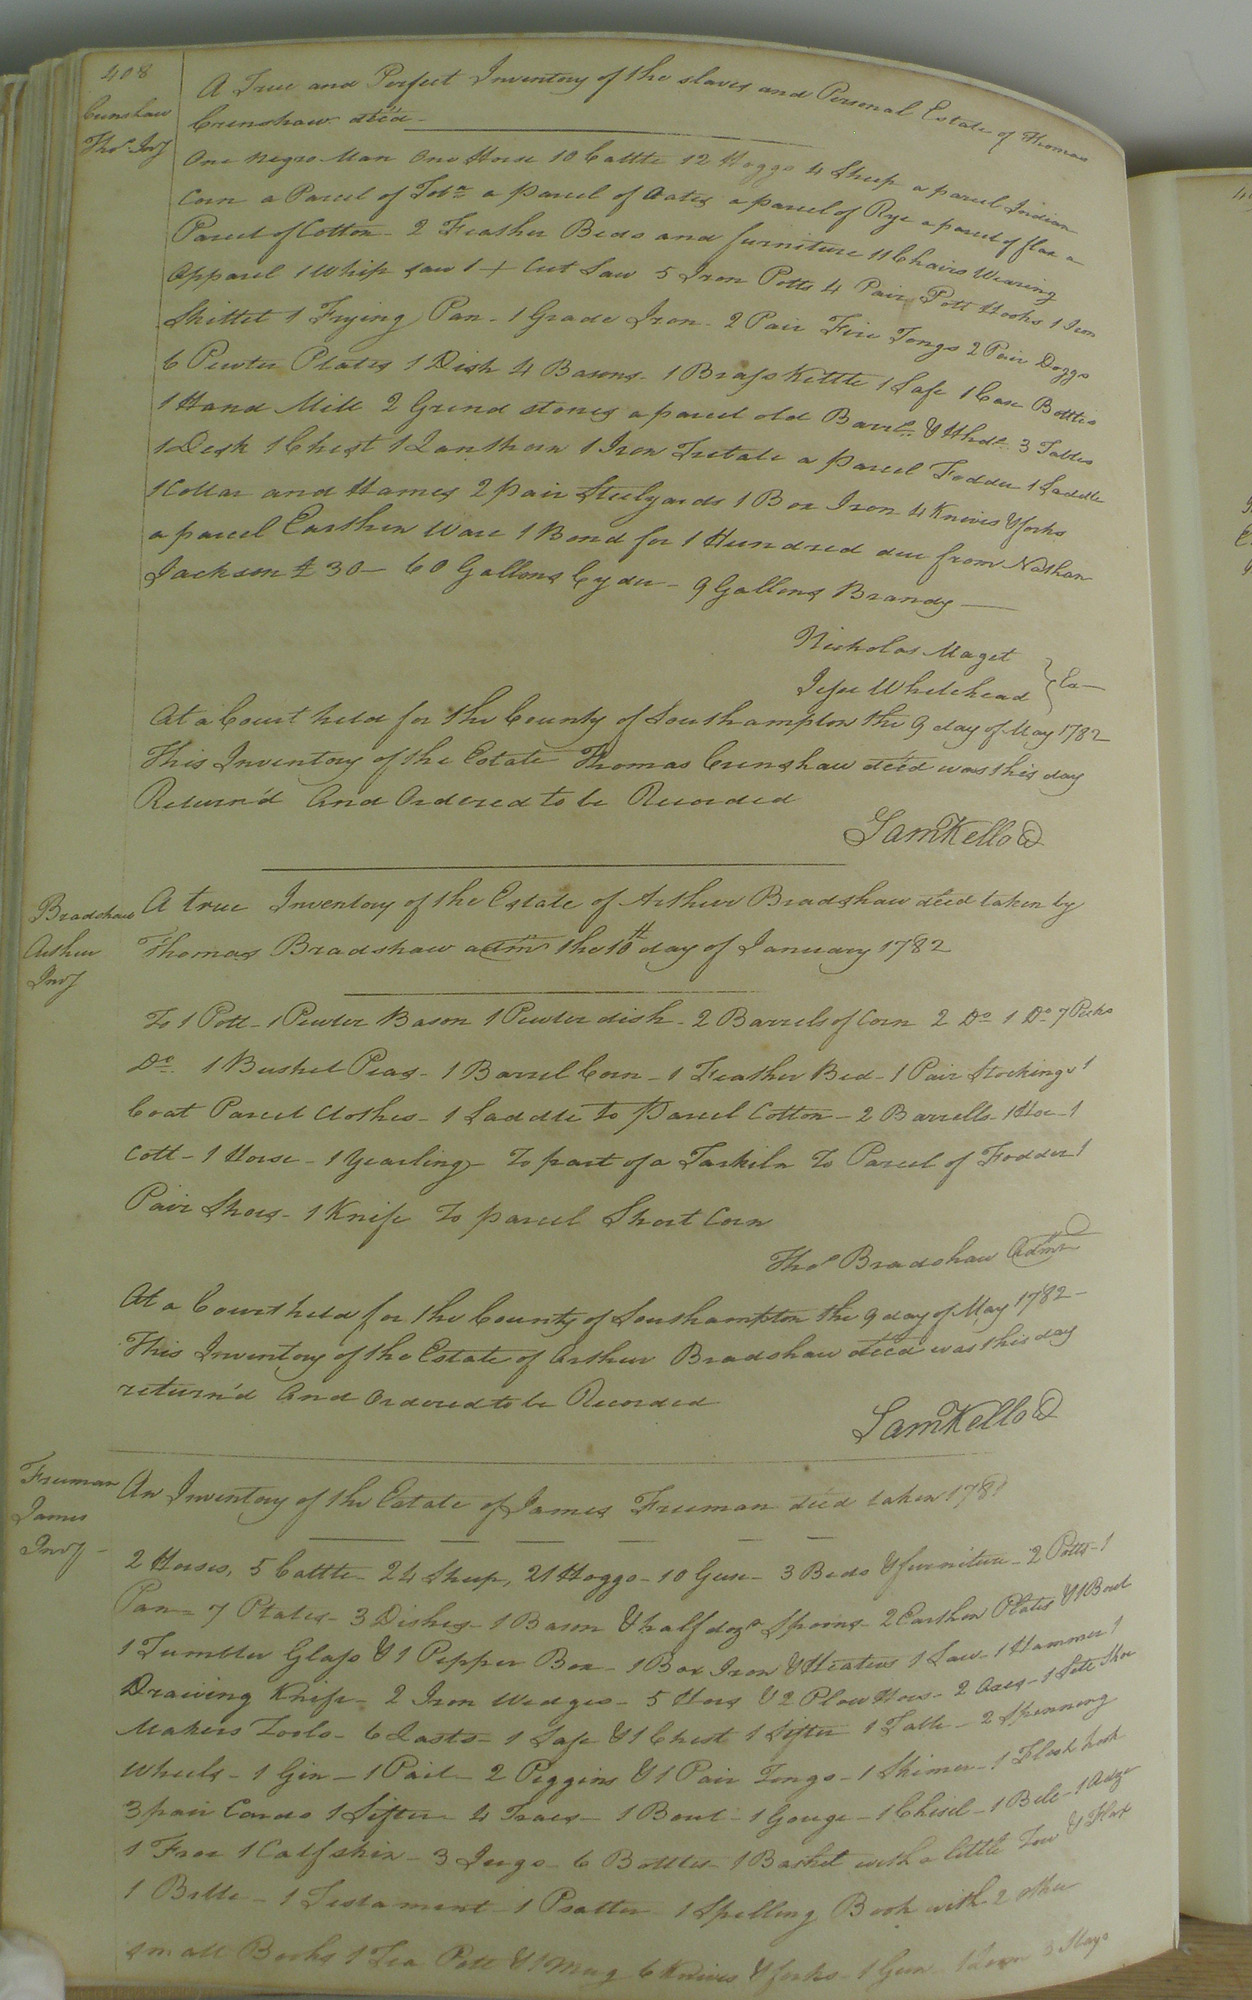 408
Crenshaw
Thos Invy
A True and Perfect Inventory of the slaves and Personal Estate of Thomas
Crenshaw dec'd
One negro Man One Horse 10 Cattle 12 Hoggs 4 Sheep a parcel Indian
Corn a Parcel of Toba a parcel of Oates a parcel of Rye a parcel of flax a
Parcel of Cotton - 2 Feather Beds and furniture 11 Chairs Wearing
Apparel 1 Whip saw 1 + Cut Saw 5 Iron Potts 4 Pair Pott Hooks 1 Iron
Skillet 1 Frying Pan - 1 Grade Iron - 2 Pair Fire Tongs 2 Pair Doggs
6 Pewter Plates 1 Dish 4 Basons - 1 Brass Kettle 1 Safe 1 Case Bottles
1 Hand Mill 2 Grind stones a parcel old Barrls & Hhds 3 Tables
1 Desk 1 Chest 1 Lanthorn 1 Iron a parcel Fodder 1 Saddle
1 Collar and Hames 2 pair Steelyards 1 Box Iron 4 Knives & forks
a parcel Earthen Ware 1 Bond for 1 Hundred due from Nathan
Jackson £ 30 - 60 Gallons Cyder - 9 Gallons Brandy
Nicholas Maget
Jesse Whitehead } Ex
At a Court held for the County of Southampton the 9 day of May 1782
This Inventory of the Estate Thomas Crenshaw dec'd was this day
Return'd And Ordered to be Recorded
Sam Kello
Bradshaw
Arthur
Invy
A true Inventory of the Estate of Arthur Bradshaw dec'd taken by
Thomas Bradshaw adm the 10th day of January 1782
To 1 Pott - 1 Pewter Bason 1 Pewter dish - 2 Barrels of Corn 2 Do 1 Do 7 Pecks
Do 1 Bushel Peas - 1 Barrel Corn - 1 Feather Bed - 1 Pair Stockings 1
Coat Parcel Clothes - 1 Saddle to Parcel Cotton - 2 Barrells - 1 Hoe - 1
Colt - 1 Horse - 1 Yearling To part of a Tarkiln To Parcel of Fodder 1
Pair Shoes - 1 Knife To parcel Short Corn
Thos Bradshaw Admr
At a Court held for the County of Southampton the 9 day of May 1782 -
This Inventory of the Estate of Arthur Bradshaw dec'd was this day
return'd And Ordered to be Recorded
Sam Kello
Freeman
James
Invy -
An Inventory of the Estate of James Freeman dec'd taken 1781
2 Horses, 5 Cattle - 24 Sheep, 21 Hoggs - 10 Geese - 3 Beds & furniture - 2 Potts - 1
Pan - 7 Plates - 3 Dishes - 1 Bason & half dozn Spoons - 2 Earthen Plates & 1 Bowl
1 Tumbler Glass & 1 Pepper Box - 1 Box Iron & Heaters 1 Saw - 1 Hammer 1
Drawing Knife - 2 Iron Wedges - 5 Hoes & 2 Plow Hoes - 2 Axes - 1 Sett Shoe
Makers Tools - 6 Lasts - 1 Safe & 1 Chest 1 Sifter 1 Table - 2 Spinning
Wheels - 1 Gin - 1 Pail - 2 Piggins & 1 Pair Tongs - 1 Skimer - 1 Flesh
3 pair Cards 1 Sifter 4 Traes - 1 Bowl - 1 Gouge - 1 Chisel - 1 Bell - 1 Adze
1 Froe 1 Calfskin - 3 Jugs - 6 Bottles - 1 Basket with a little Tow & Flax
1 Bible - 1 Testament - 1 Psalter - 1 Spelling Book with 2 other
small Books 1 Tea Pott & 1 Mug 6 Knives & forks - 1 Gun 1 Loom 3 Slays